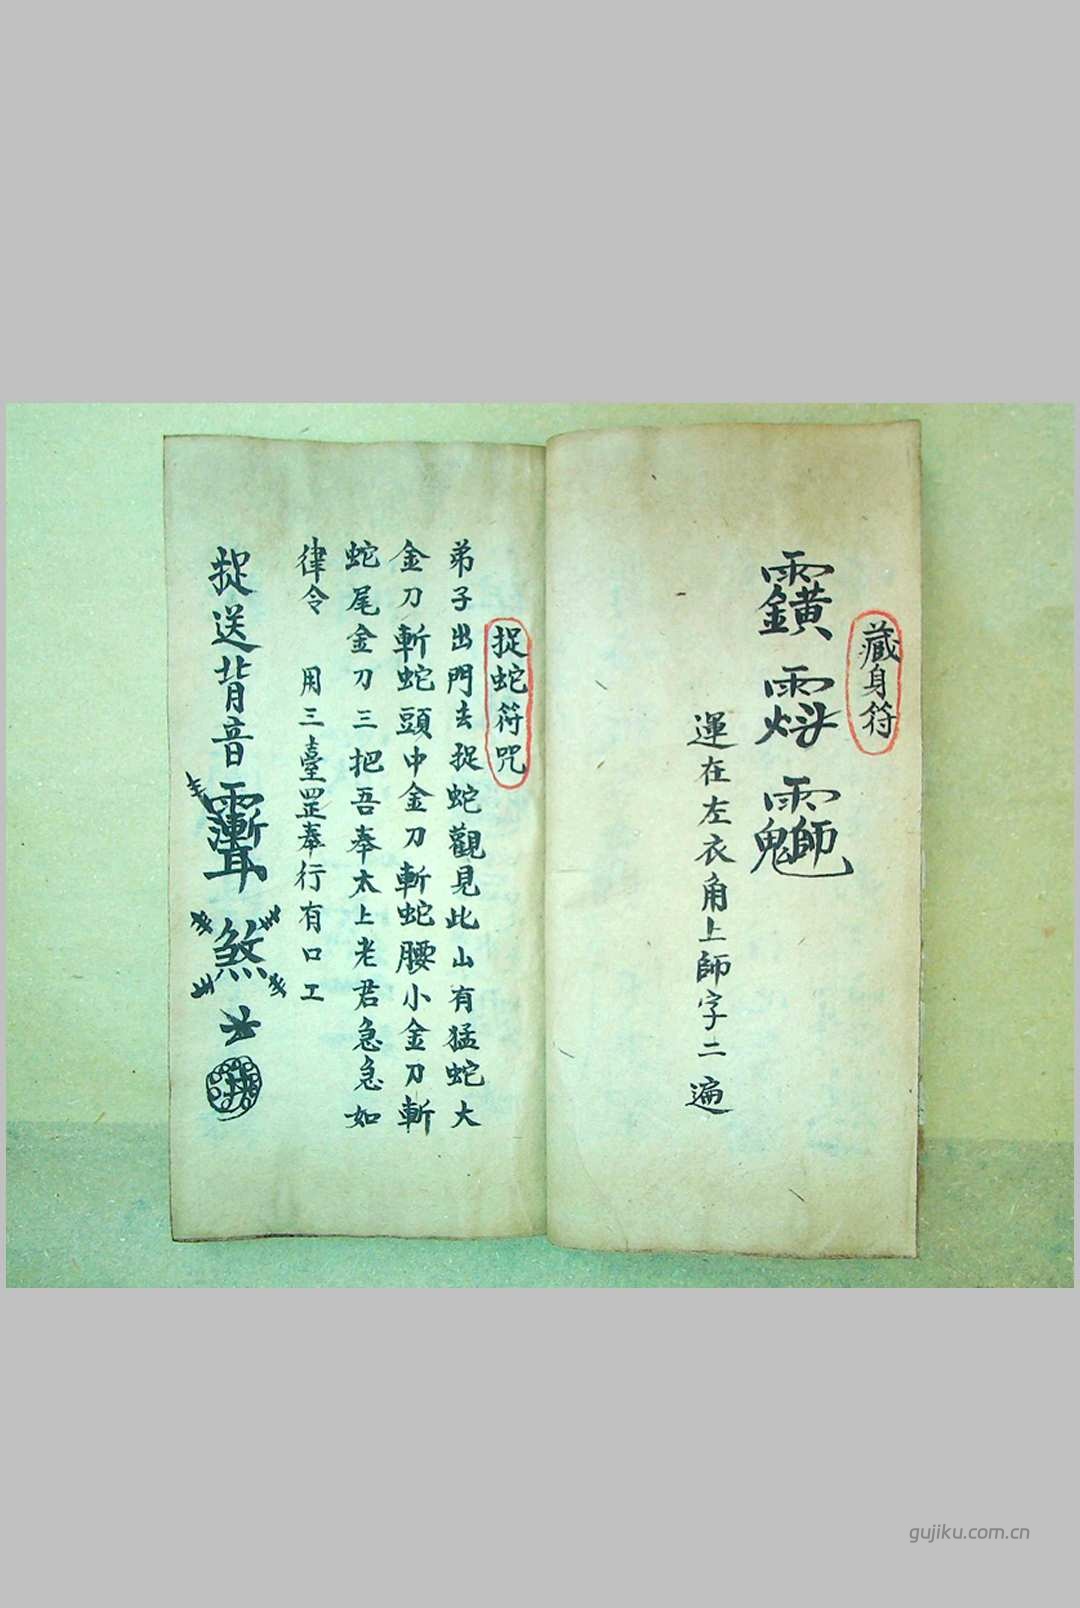 藏身符
運在左衣角上師字二遍
捉蛇符咒
弟子出門去捉蛇觀見此山有猛蛇大
金刀斬蛇頭中金刀斬蛇腰小金刀斬
蛇尾金刀三把吾奉太上老君急急如
律令 用三臺罡奉行有口工
捉送背音
煞
gujiku.com.cn